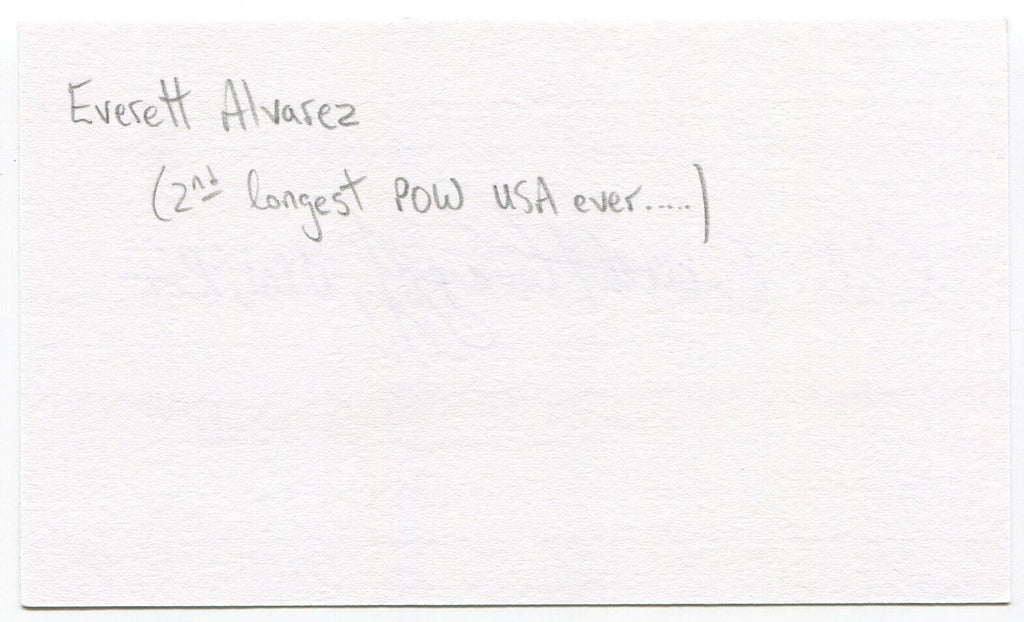 Everett Alvarez
(2nd longest POW USA ever.....)